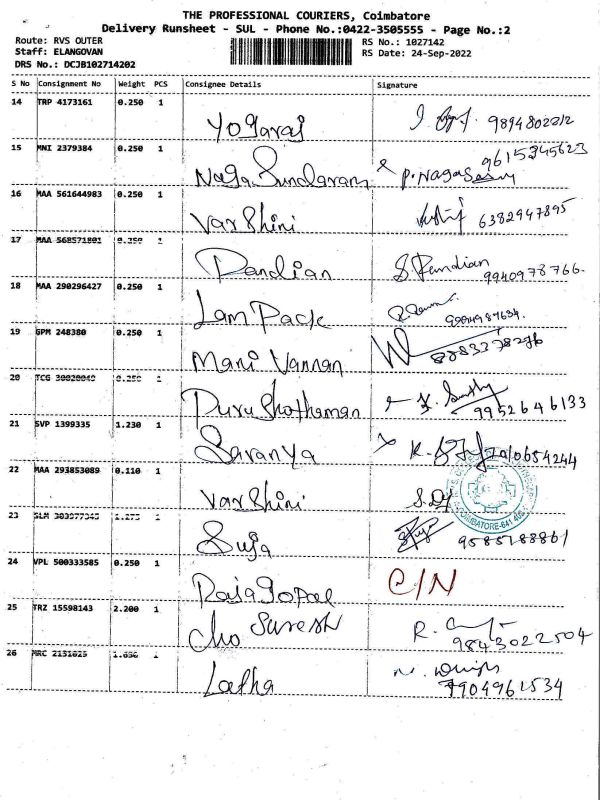 THE PROFESSIONAL COURIERS, Coimbatore
Delivery Runsheet - SUL - Phone No.:0422-3505555 - Page No.:2
Route: RVS OUTER
Staff: ELANGOVAN
DRS No.: DCJB102714202
RS No.: 1027142
RS Date: 24-Sep-2022
S No Consignment No Weight PCS Consignee Details Signature
14 TRP 4173161 0.250 1
Yogaraj 9894802212
15 MNI 2379384 0.250 1 9615345623
Naga Sundaram P. Nagasamy
16 MAA 561644983 0.250 1
Varshini 6382947895
17 MAA 568571801 0.250 1
Pandian S. Pandian 9940978766.
18 MAA 290296427 0.250 1
Lam Pack
19 GPM 248380 0.250 1
Mani Vannan
20 TCG 0.250 1
Purushothaman 9952646133
21 SVP 1399335 1.230 1
Saranya
22 MAA 293853089 0.110 1
Varshini
COIMBATORE-641
23 1
Suja
24 VPL 500333585 0.250 1
Rajagopal C/N
25 TRZ 15598143 2.200 1
Cho Suresh R. 9843022504
26 MRC 2131025 1
Latha 7904961534